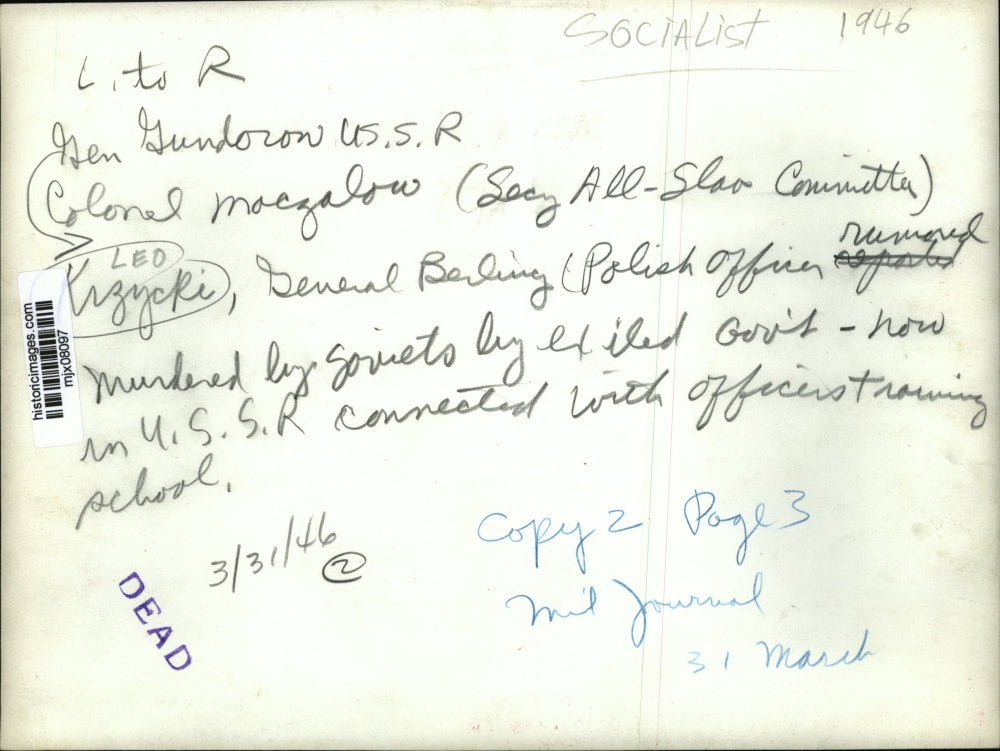 SOCIALIST 1946
L. to R
Gen Gundorow U.S.S.R
Colonel Moczalow (Secy All-Slav Committee)
LEO
rumored
Krzycki, General Berling (Polish Officer reported
murdered by Soviets by exiled Gov't - now
in U.S.S.R connected with officers training
school.
3/31/46
2
DEAD
Copy 2 Page 3
Mil Journal
31 March
historicimages.com
mjx08097